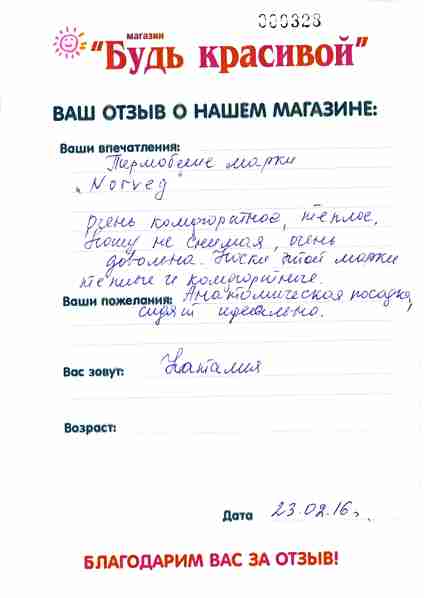 000328
магазин
"Будь красивой"
ВАШ ОТЗЫВ О НАШЕМ МАГАЗИНЕ:
Ваши впечатления:
Термобелье марки
"Norveg
Очень комфортное, теплое.
Ношу не снимая, очень
довольна. Носки этой марки
теплые и комфортные.
Ваши пожелания: Анатомическая посадка,
сидят идеально.
Вас зовут: Наталия
Возраст:
Дата 23.02.16г.
БЛАГОДАРИМ ВАС ЗА ОТЗЫВ!